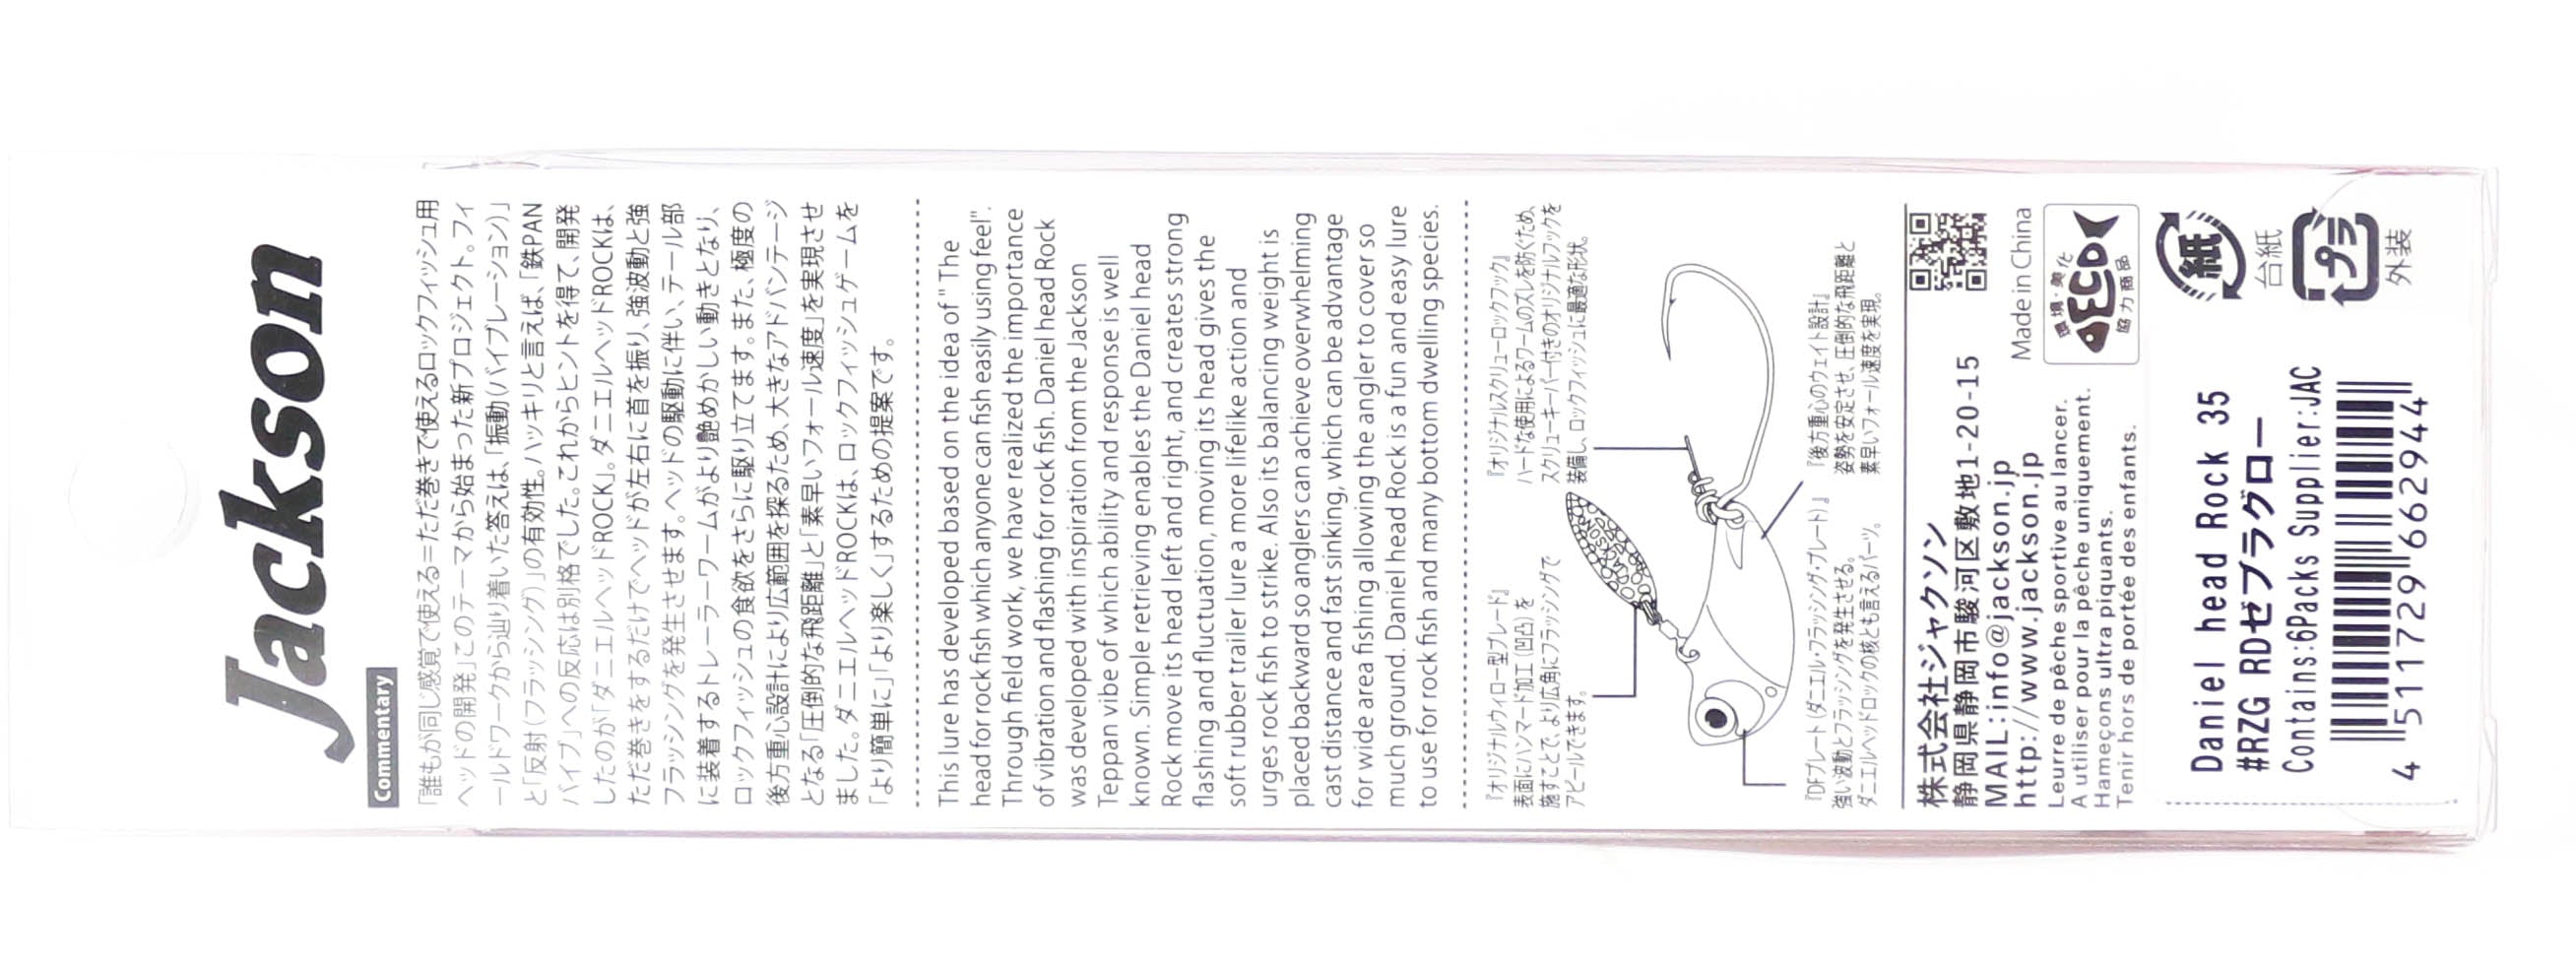 Jackson
Commentary
「誰もが同じ感覚で使える＝ただ巻きで使えるロックフィッシュ用
ヘッドの開発」このテーマから始まった新プロジェクト。フィ
ールドワークから辿り着いた答えは、「振動（バイブレーション）」
と「反射（フラッシング）」の有効性。ハッキリと言えば、「鉄PAN
バイブ」への反応は別格でした。これからヒントを得て、開発
したのが「ダニエルヘッドROCK」。ダニエルヘッドROCKは、
ただ巻きをするだけでヘッドが左右に首を振り、強波動と強
フラッシングを発生させます。ヘッドの駆動に伴い、テール部
に装着するトレーラーワームがより艶めかしい動きとなり、
ロックフィッシュの食欲をさらに駆り立てます。また、極度の
後方重心設計により広範囲を探るため、大きなアドバンテージ
となる「圧倒的な飛距離」と「素早いフォール速度」を実現させ
ました。ダニエルヘッドROCKは、ロックフィッシュゲームを
「より簡単に」「より楽しく」するための提案です。
This lure has developed based on the idea of " The
head for rock fish which anyone can fish easily using feel".
Through field work, we have realized the importance
of vibration and flashing for rock fish. Daniel head Rock
was developed with inspiration from the Jackson
Teppan vibe of which ability and response is well
known. Simple retrieving enables the Daniel head
Rock move its head left and right, and creates strong
flashing and fluctuation, moving its head gives the
soft rubber trailer lure a more lifelike action and
urges rock fish to strike. Also its balancing weight is
placed backward so anglers can achieve overwhelming
cast distance and fast sinking, which can be advantage
for wide area fishing allowing the angler to cover so
much ground. Daniel head Rock is a fun and easy lure
to use for rock fish and many bottom dwelling species.
『オリジナルウィロー型ブレード』
表面にハンマード加工（凹凸）を
施すことで、より広角にフラッシングで
アピールできます。
『オリジナルスクリューロックフック』
ハードな使用によるワームのズレを防ぐため、
スクリューキーパー付きのオリジナルフックを
装備し、ロックフィッシュに最適な形状。
JACKSON
『DFプレート（ダニエル・フラッシング・プレート）』
強い波動とフラッシングを発生させる。
ダニエルヘッドロックの核とも言えるパーツ。
『後方重心のウェイト設計』
姿勢を安定させ、圧倒的な飛距離と
素早いフォール速度を実現。
株式会社ジャクソン
静岡県静岡市駿河区敷地1-20-15
MAIL:info@jackson.jp
http://www.jackson.jp
Leurre de pêche sportive au lancer.
A utiliser pour la pêche uniquement.
Hameçons ultra piquants.
Tenir hors de portée des enfants.
Made in China
環境・美化
ECO
協力商品
紙
台紙
プラ
外装
Daniel head Rock 35
#RZG RDゼブラグロー
Contains:6Packs Supplier:JAC
4 511729 662944